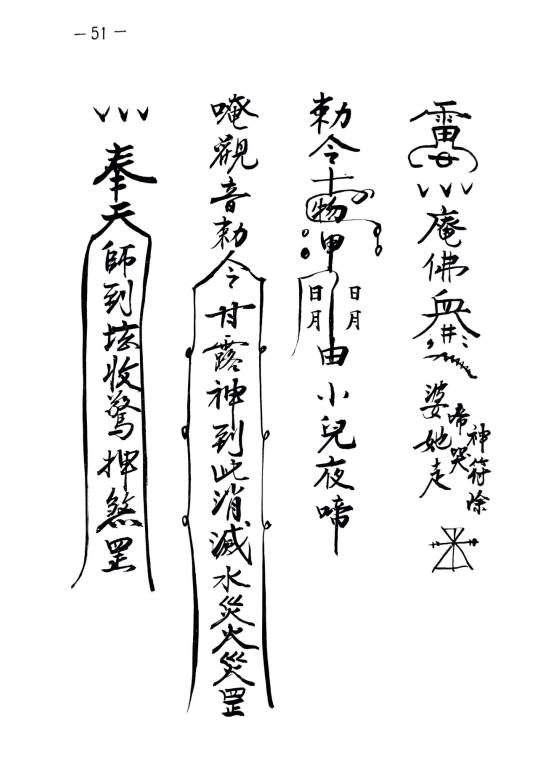 — 51 —
雷
庵佛
啼哭神符除
婆她走
勅令
物
甲
日月 日月
由小兒夜啼
唵觀音勅令甘露神到此消滅水災火災罡
奉天師到垓收驚押煞罡